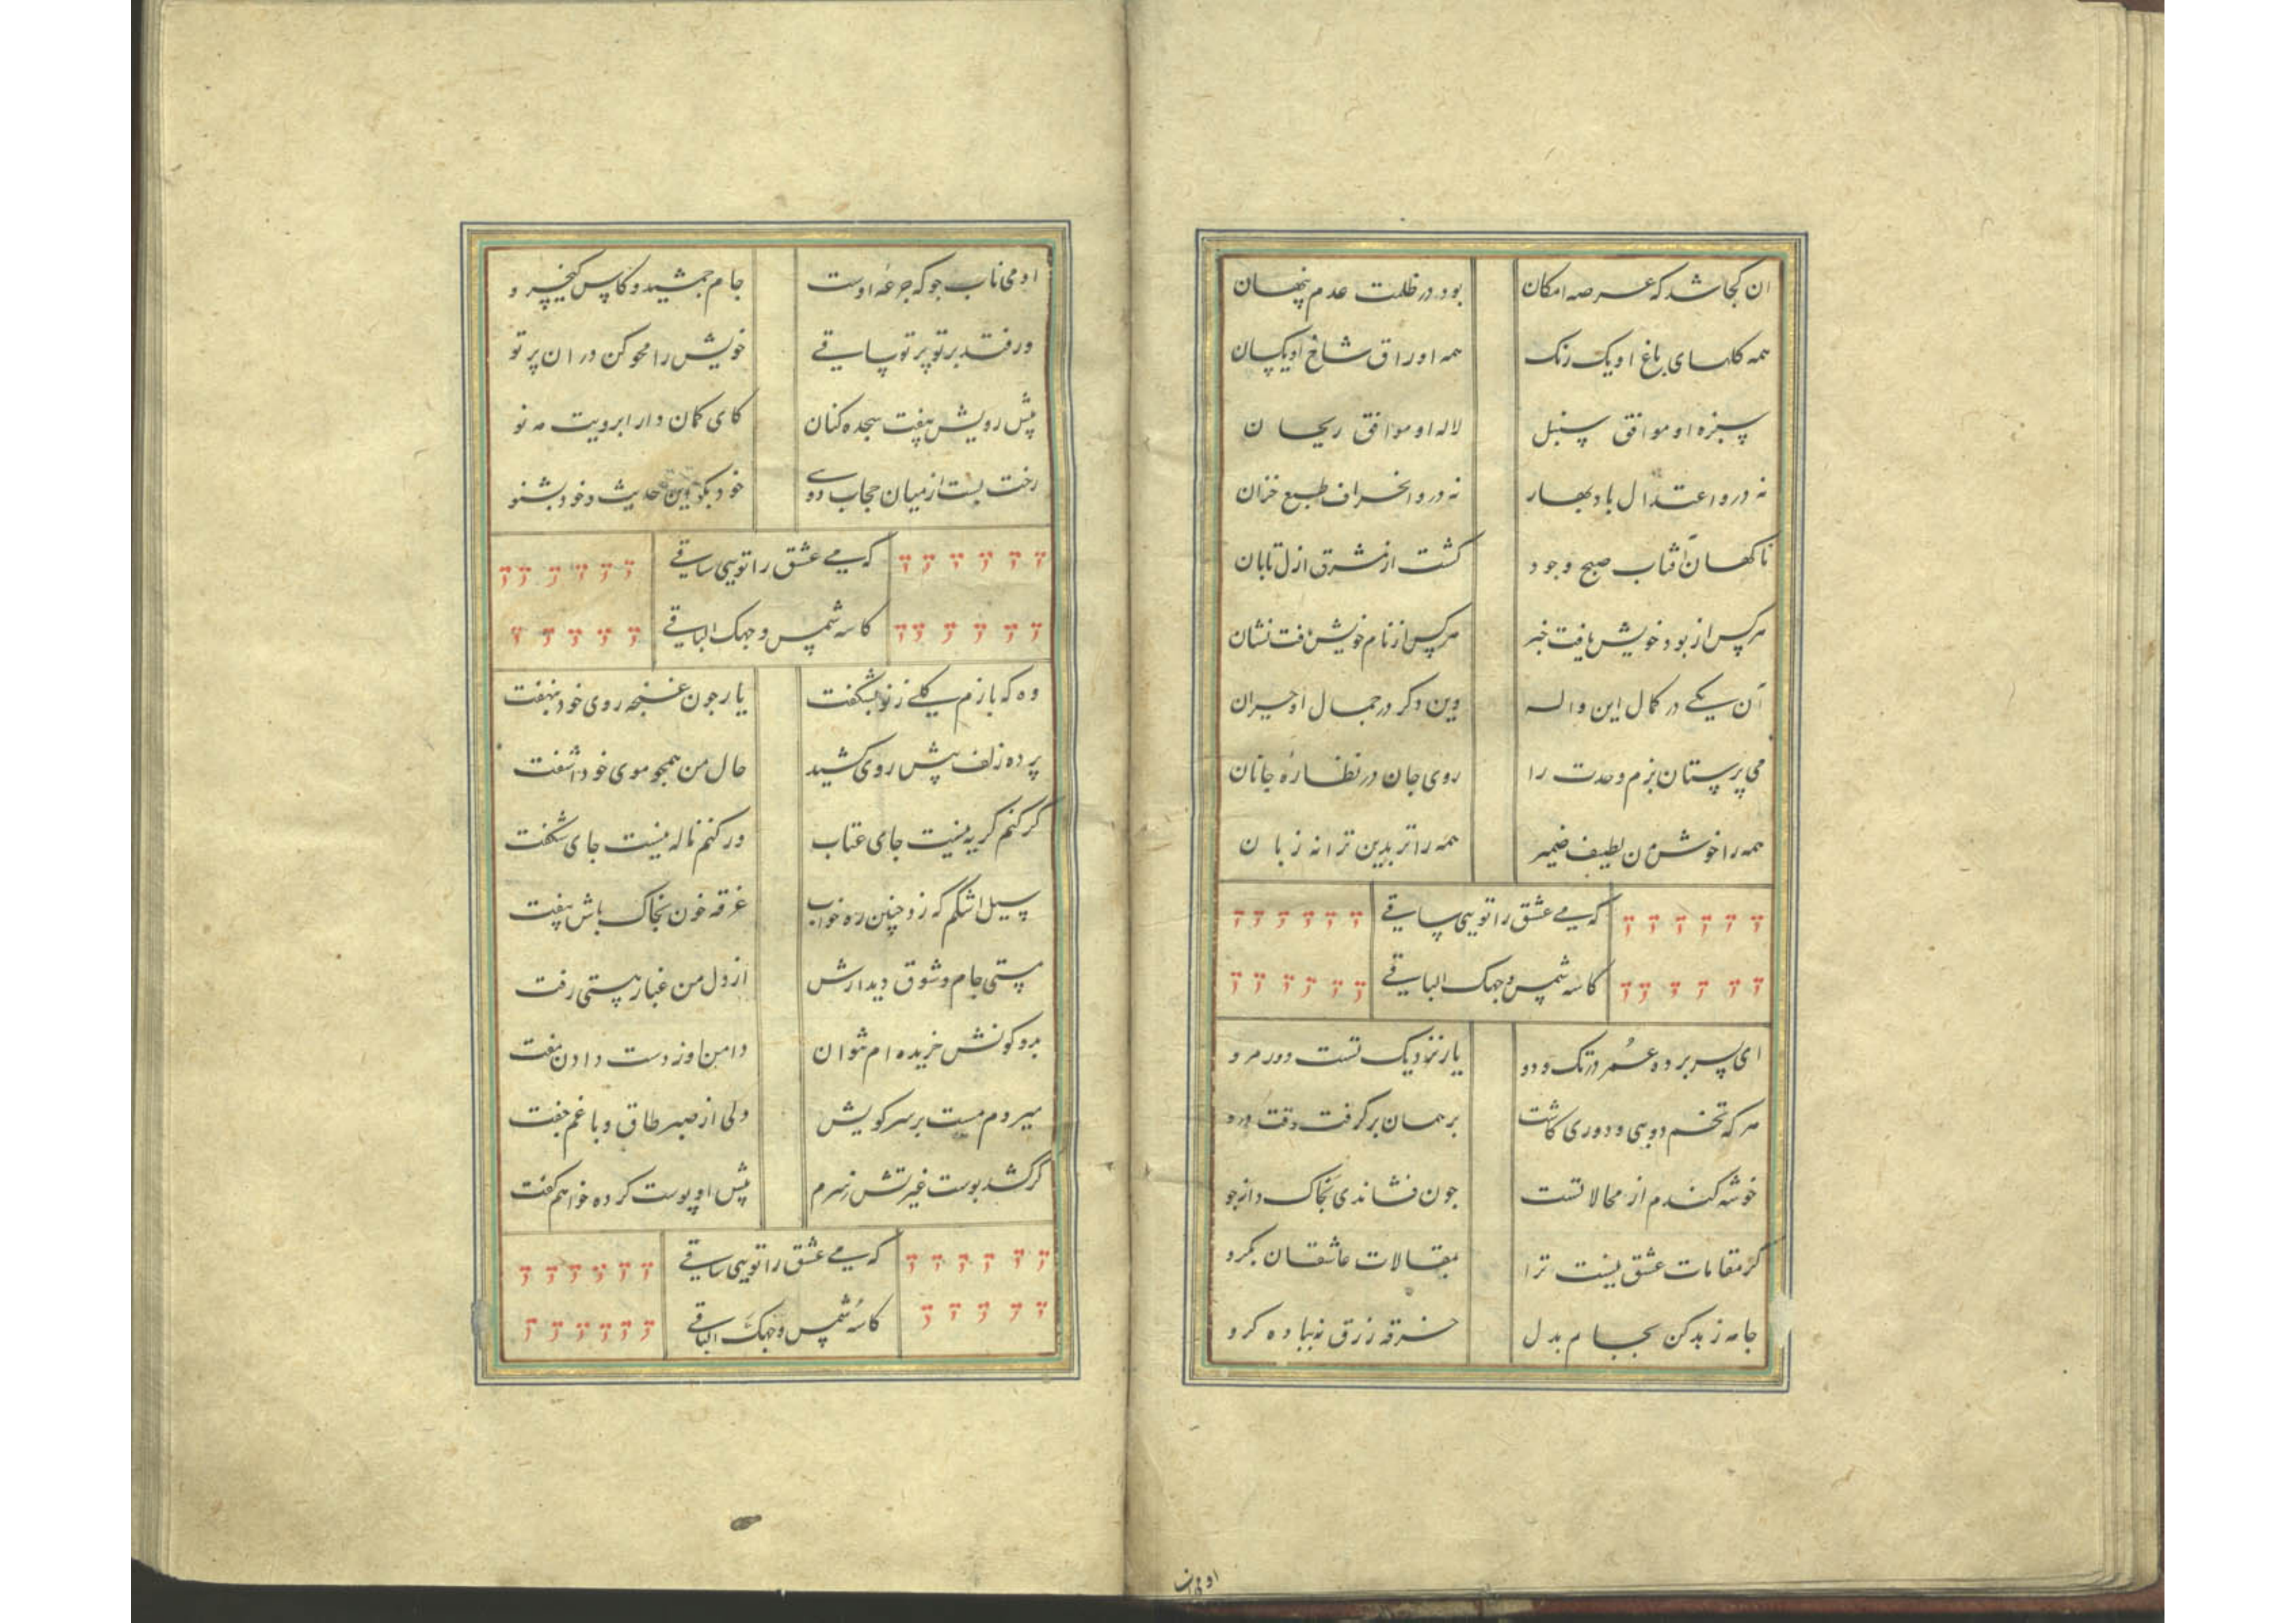 ان کجا شد که عرصه امکان بود در ظلمت عدم پنهان
همه کلهای باغ او یک رنک همه اوراق شاخ او یکسان
سبزه او موافق سنبل لاله او موافق ریحان
نه درو اعتدال باد بهار نه درو انحراف طبع خزان
ناکهان آفتاب صبح وجود کشت از مشرق ازل تابان
هر کس از بود خویش یافت خبر هر کس از نام خویش یافت نشان
آن یکے در کمال این واله وین دکر در جمال او حیران
می پرستان بزم وحدت را روی جان در نظاره جانان
همه را خوش من لطیف ضمیر همه را تر بدین ترانه زبان
که مے عشق را تویی ساقے
کاسه شمس وجهک الباقے
ای بسر برده عمر در تک و دو یار نزدیک تست دور مرو
هر که تخم دویی و دوری کاشت بر همان بر کرفت وقت درو
خوشه کندم از محالاتست جون فشاندی بخاک دانه جو
کر مقامات عشق نیست ترا بمقالات عاشقان بکرو
جامه زهد کن بجام بدل خرقه زرق نه بباده کرو
او می ناب
او می ناب جو که جرعهٔ اوست جام جمشید و کاس کیخسرو
ور فتد بر تو پرتو ساقے خویش را محو کن در ان پرتو
پیش رویش بیفت سجده کنان کای کمان دار ابرویت مه نو
رخت بست از میان حجاب دوے خود بکو این حدیث و خود بشنو
که مے عشق را تویی ساقے
کاسه شمس وجهک الباقے
وه که بازم کلے ز نو بشکفت یار جون غنجه روی خود بنهفت
پرده زلف پیش روی کشید حال من همجو موی خود اشفت
کر کنم کریه نیست جای عتاب ور کنم ناله نیست جای شکفت
سیل اشکم که زد چنین ره خواب غرقه خون بخاک باش بیفت
مستی جام و شوق دیدارش از دل من غبار هستی رفت
بدو کونش خریده ام نتوان دامن او ز دست دادن مفت
میروم مست بر سر کویش ولی از صبر طاق و با غم جفت
کر کشد پوست غیرتش ز سرم پیش او پوست کرده خواهم کفت
که مے عشق را تویی ساقے
کاسهٔ شمس وجهک الباقے